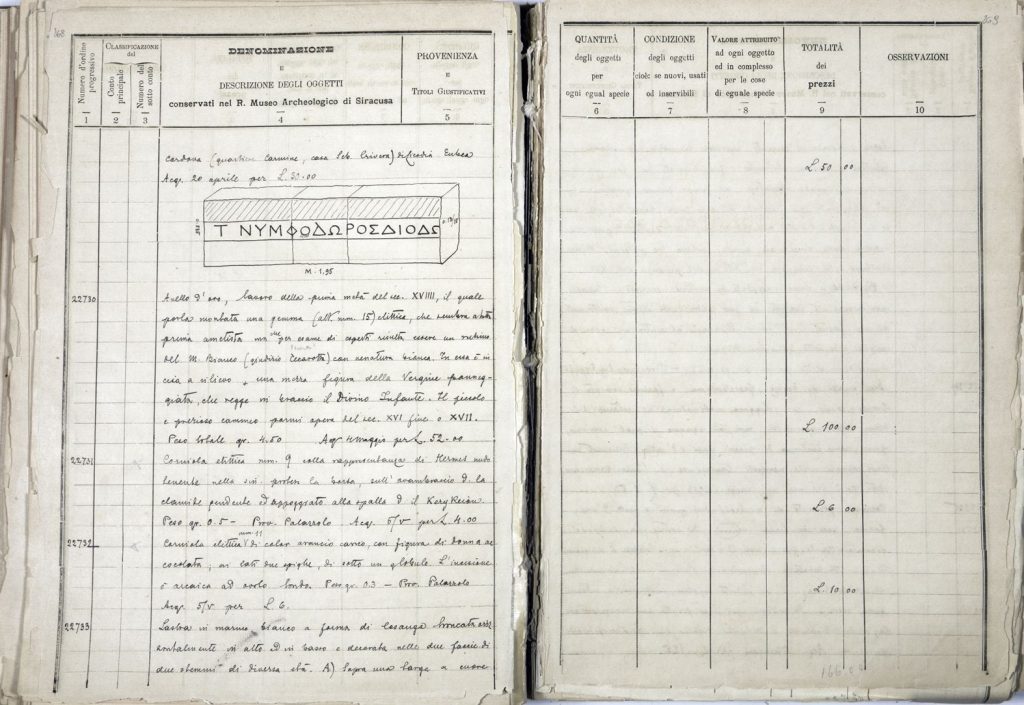 168
Numero d'ordine progressivo
CLASSIFICAZIONE del
Conto principale
Numero del sotto conto
DENOMINAZIONE
E
DESCRIZIONE DEGLI OGGETTI
conservati nel R. Museo Archeologico di Siracusa
PROVENIENZA
E
TITOLI GIUSTIFICATIVI
1 2 3 4 5
Cardona (quartiere Carmine, casa Seb. Crivera) di Licodia Eubea
Acq. 20 aprile per L. 30.00
Τ ΝΥΜΦΟΔΩΡΟΣΔΙΟΔΩ
M. 1.95
22730
Anello d'oro, lavoro della prima metà del sec. XVIIII, il quale
porta montata una gemma (alt. mm. 15) elittica, che sembra a tutta
prima ametista ma che per esame di esperti risulta essere un
del M. Bianco (giudizio) con venatura bianca. In essa è in
cisa a rilievo una mezza figura della Vergine panneg-
giata, che regge in braccio il Divino Infante. Il piccolo
e prezioso cammeo parmi opera del sec. XVI fine o XVII.
Peso totale gr. 4.50 Acq. maggio per L. 52.00
22731
Corniola elittica mm. 9 colla rappresentanza di Hermes nudo
tenente nella sin. protesa la borsa, sull'avambraccio d. la
clamide pendente ed appoggiato alla spalla d. il Kerykeion.
Peso gr. 0.5 - Prov. Palazzolo. Acq. 5/V per L. 4.00
22732
Corniola elittica mm. 11 di color arancio carneo, con figura di donna ac
cocolata; ai lati due spighe, di sotto un globulo. L'incisione
è arcaica ad orlo. Peso gr. 0.3 - Prov. Palazzolo
Acq. 5/V per L. 6.
22733
Lastra in marmo bianco a forma di losanga troncata oriz
zontalmente in alto ed in basso e decorata nelle due faccie di
due stemmi di diversa età. A) Sopra una targa a cuore
QUANTITÀ
degli oggetti
per
ogni egual specie
6
CONDIZIONE
degli oggetti
cioè: se nuovi, usati
od inservibili
7
VALORE ATTRIBUITO
ad ogni oggetto
ed in complesso
per le cose
di eguale specie
8
TOTALITÀ
dei
prezzi
9
OSSERVAZIONI
10
L. 50 00
L. 100 00
L. 6 00
L. 10 00